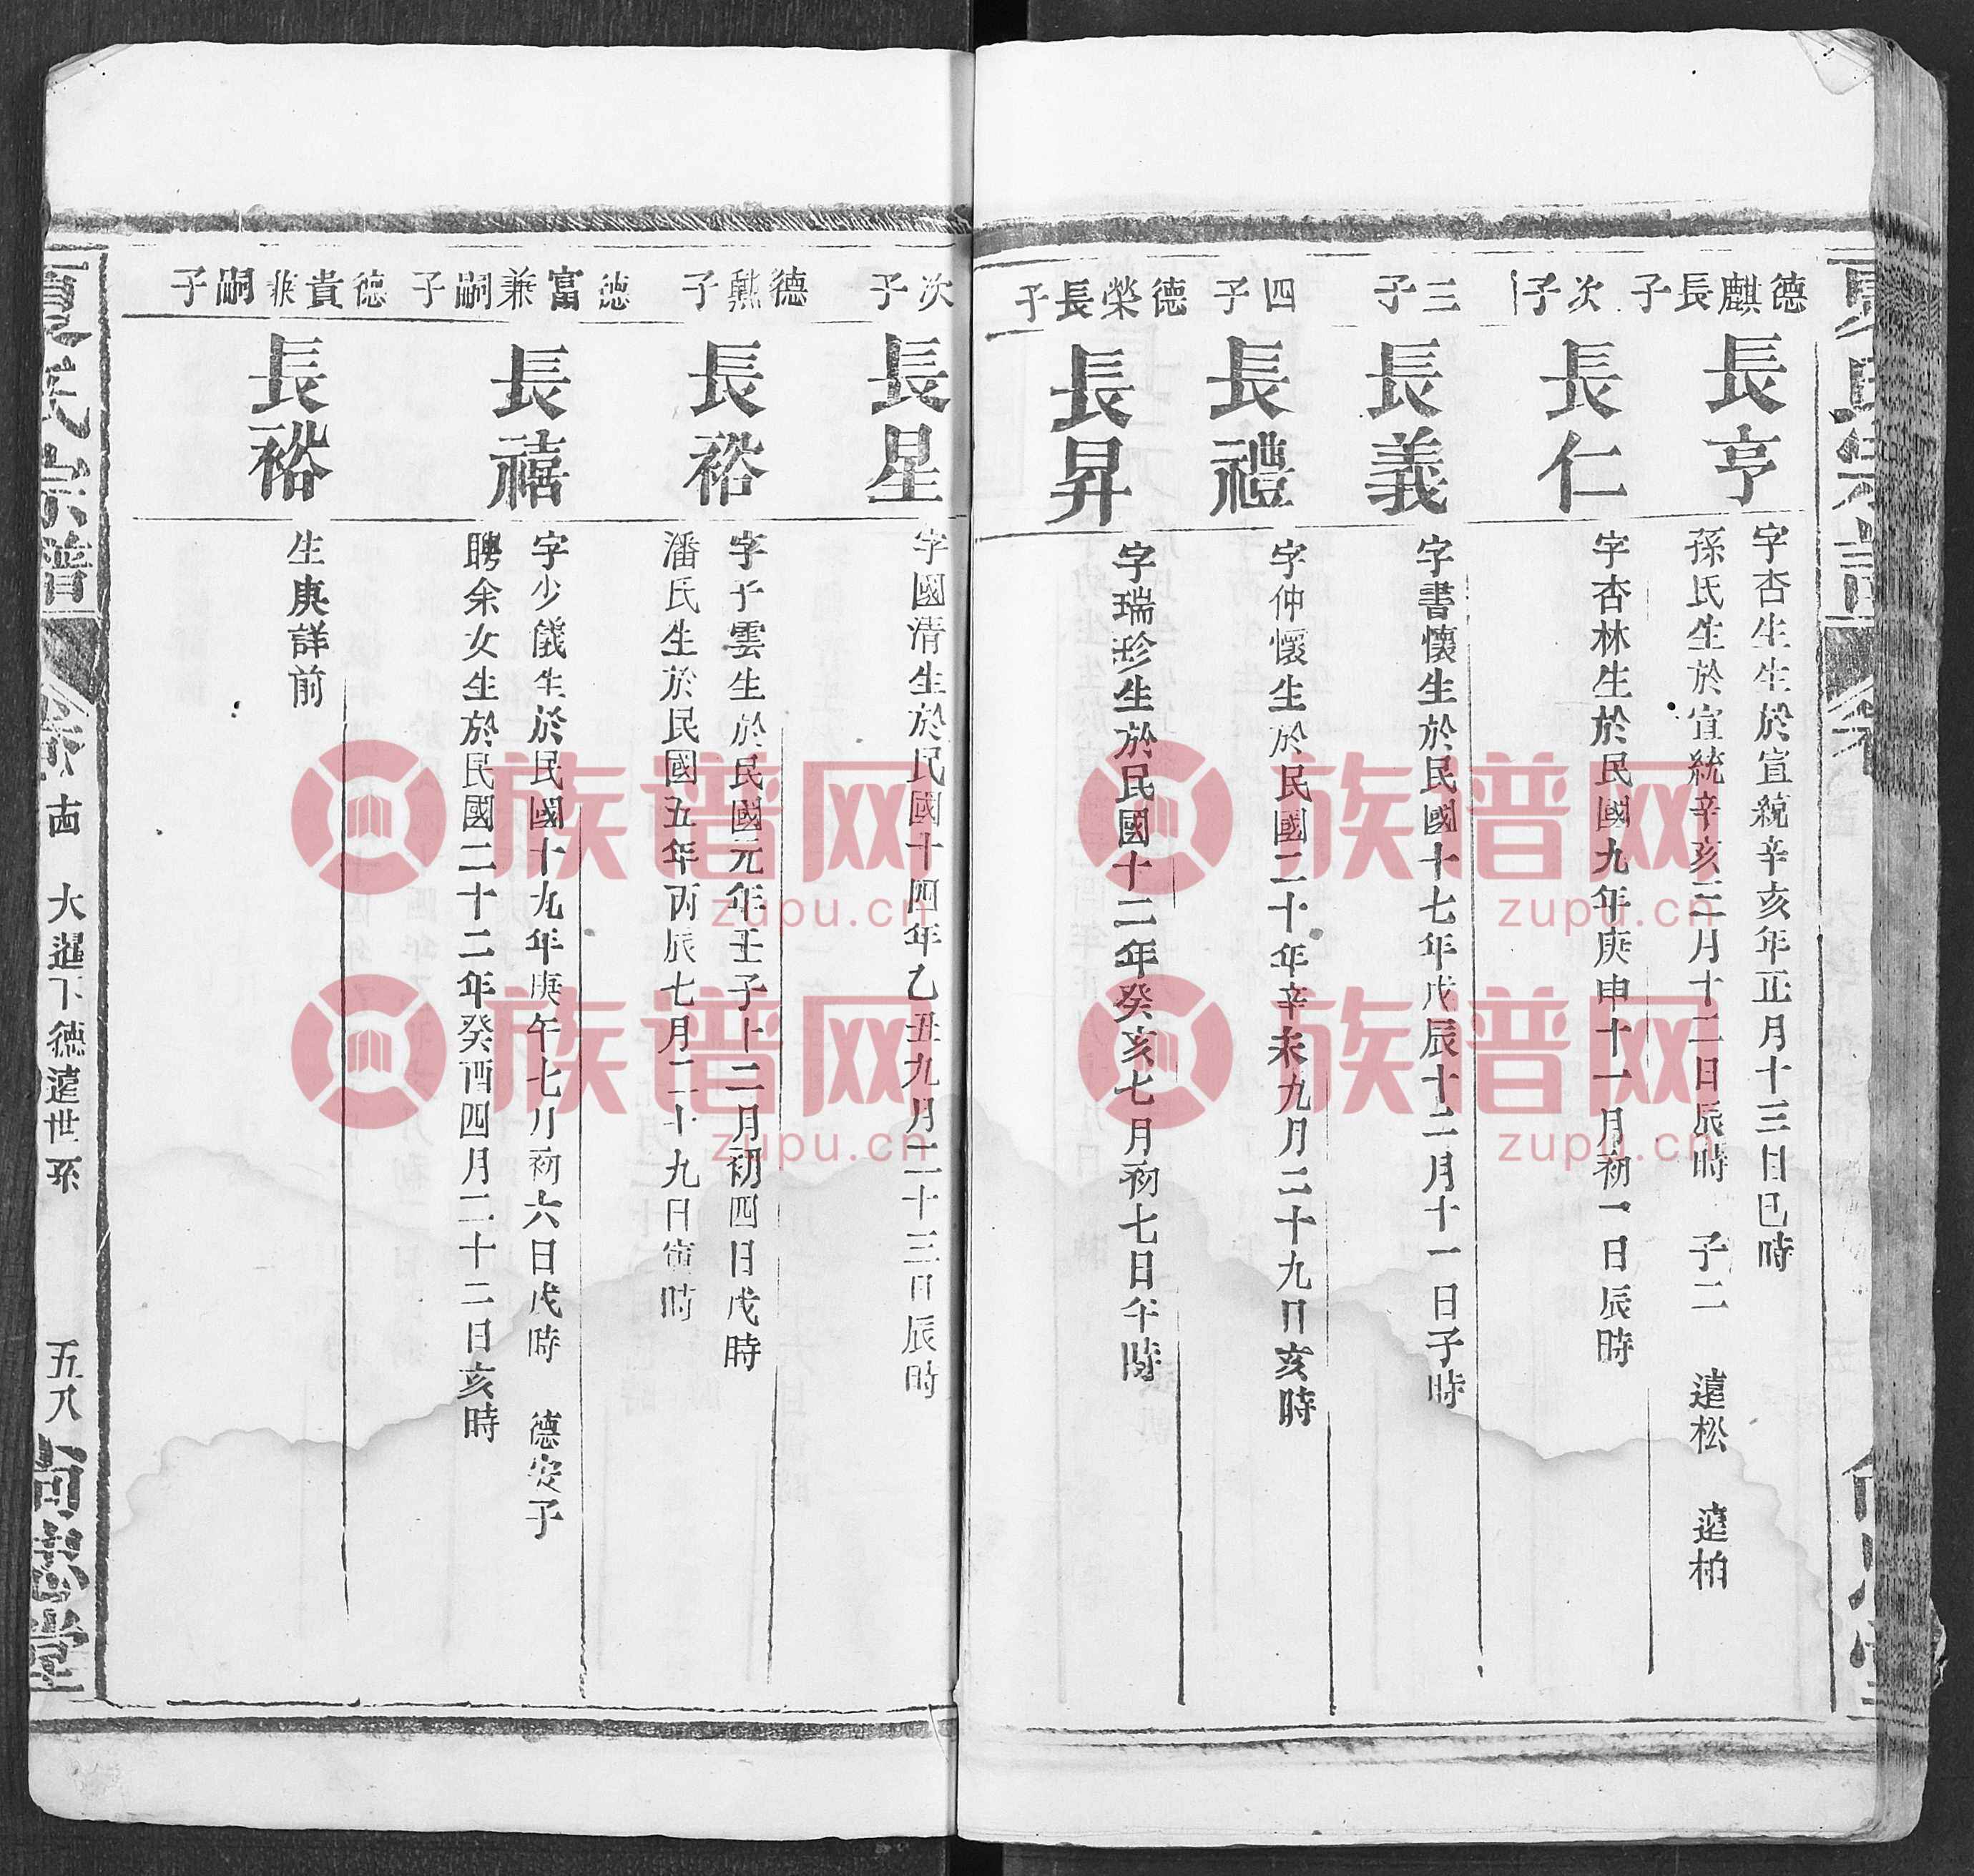 德麒長子
長亨
字杏生生於宣統辛亥年正月十三日巳時
孫氏生於宣統辛亥三月十二日辰時 子二 遠松 遠柏
次子
長仁
字杏林生於民國九年庚申十一月初一日辰時
三子
長義
字書懷生於民國十七年戊辰十二月十一日子時
四子
長禮
字仲懷生於民國二十年辛未九月二十九日亥時
德榮長子
長昇
字瑞珍生於民國十二年癸亥七月初七日午時
次子
長星
字國清生於民國十四年乙丑九月二十三日辰時
德熱子
長裕
字子雲生於民國元年壬子十二月初四日戊時
潘氏生於民國五年丙辰七月二十九日寅時
德富兼嗣子
長禧
字少儀生於民國十九年庚午七月初六日戌時 德安子
聘余女生於民國二十二年癸酉四月二十二日亥時
德貴兼嗣子
長裕
生庚詳前
夏氏宗譜
卷古 大暹下德遠世系
五八
尚忠堂
族谱网
zupu.cn
族谱网
zupu.cn
族谱网
zupu.cn
族谱网
zupu.cn